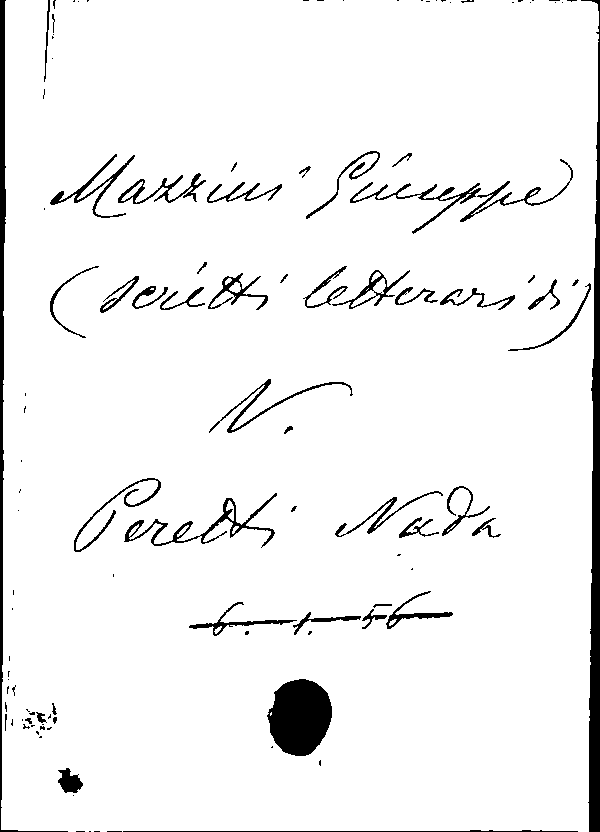 Mazzini Giuseppe
(scritti letterari di)
V.
Peretti Nada
6. 1. 56